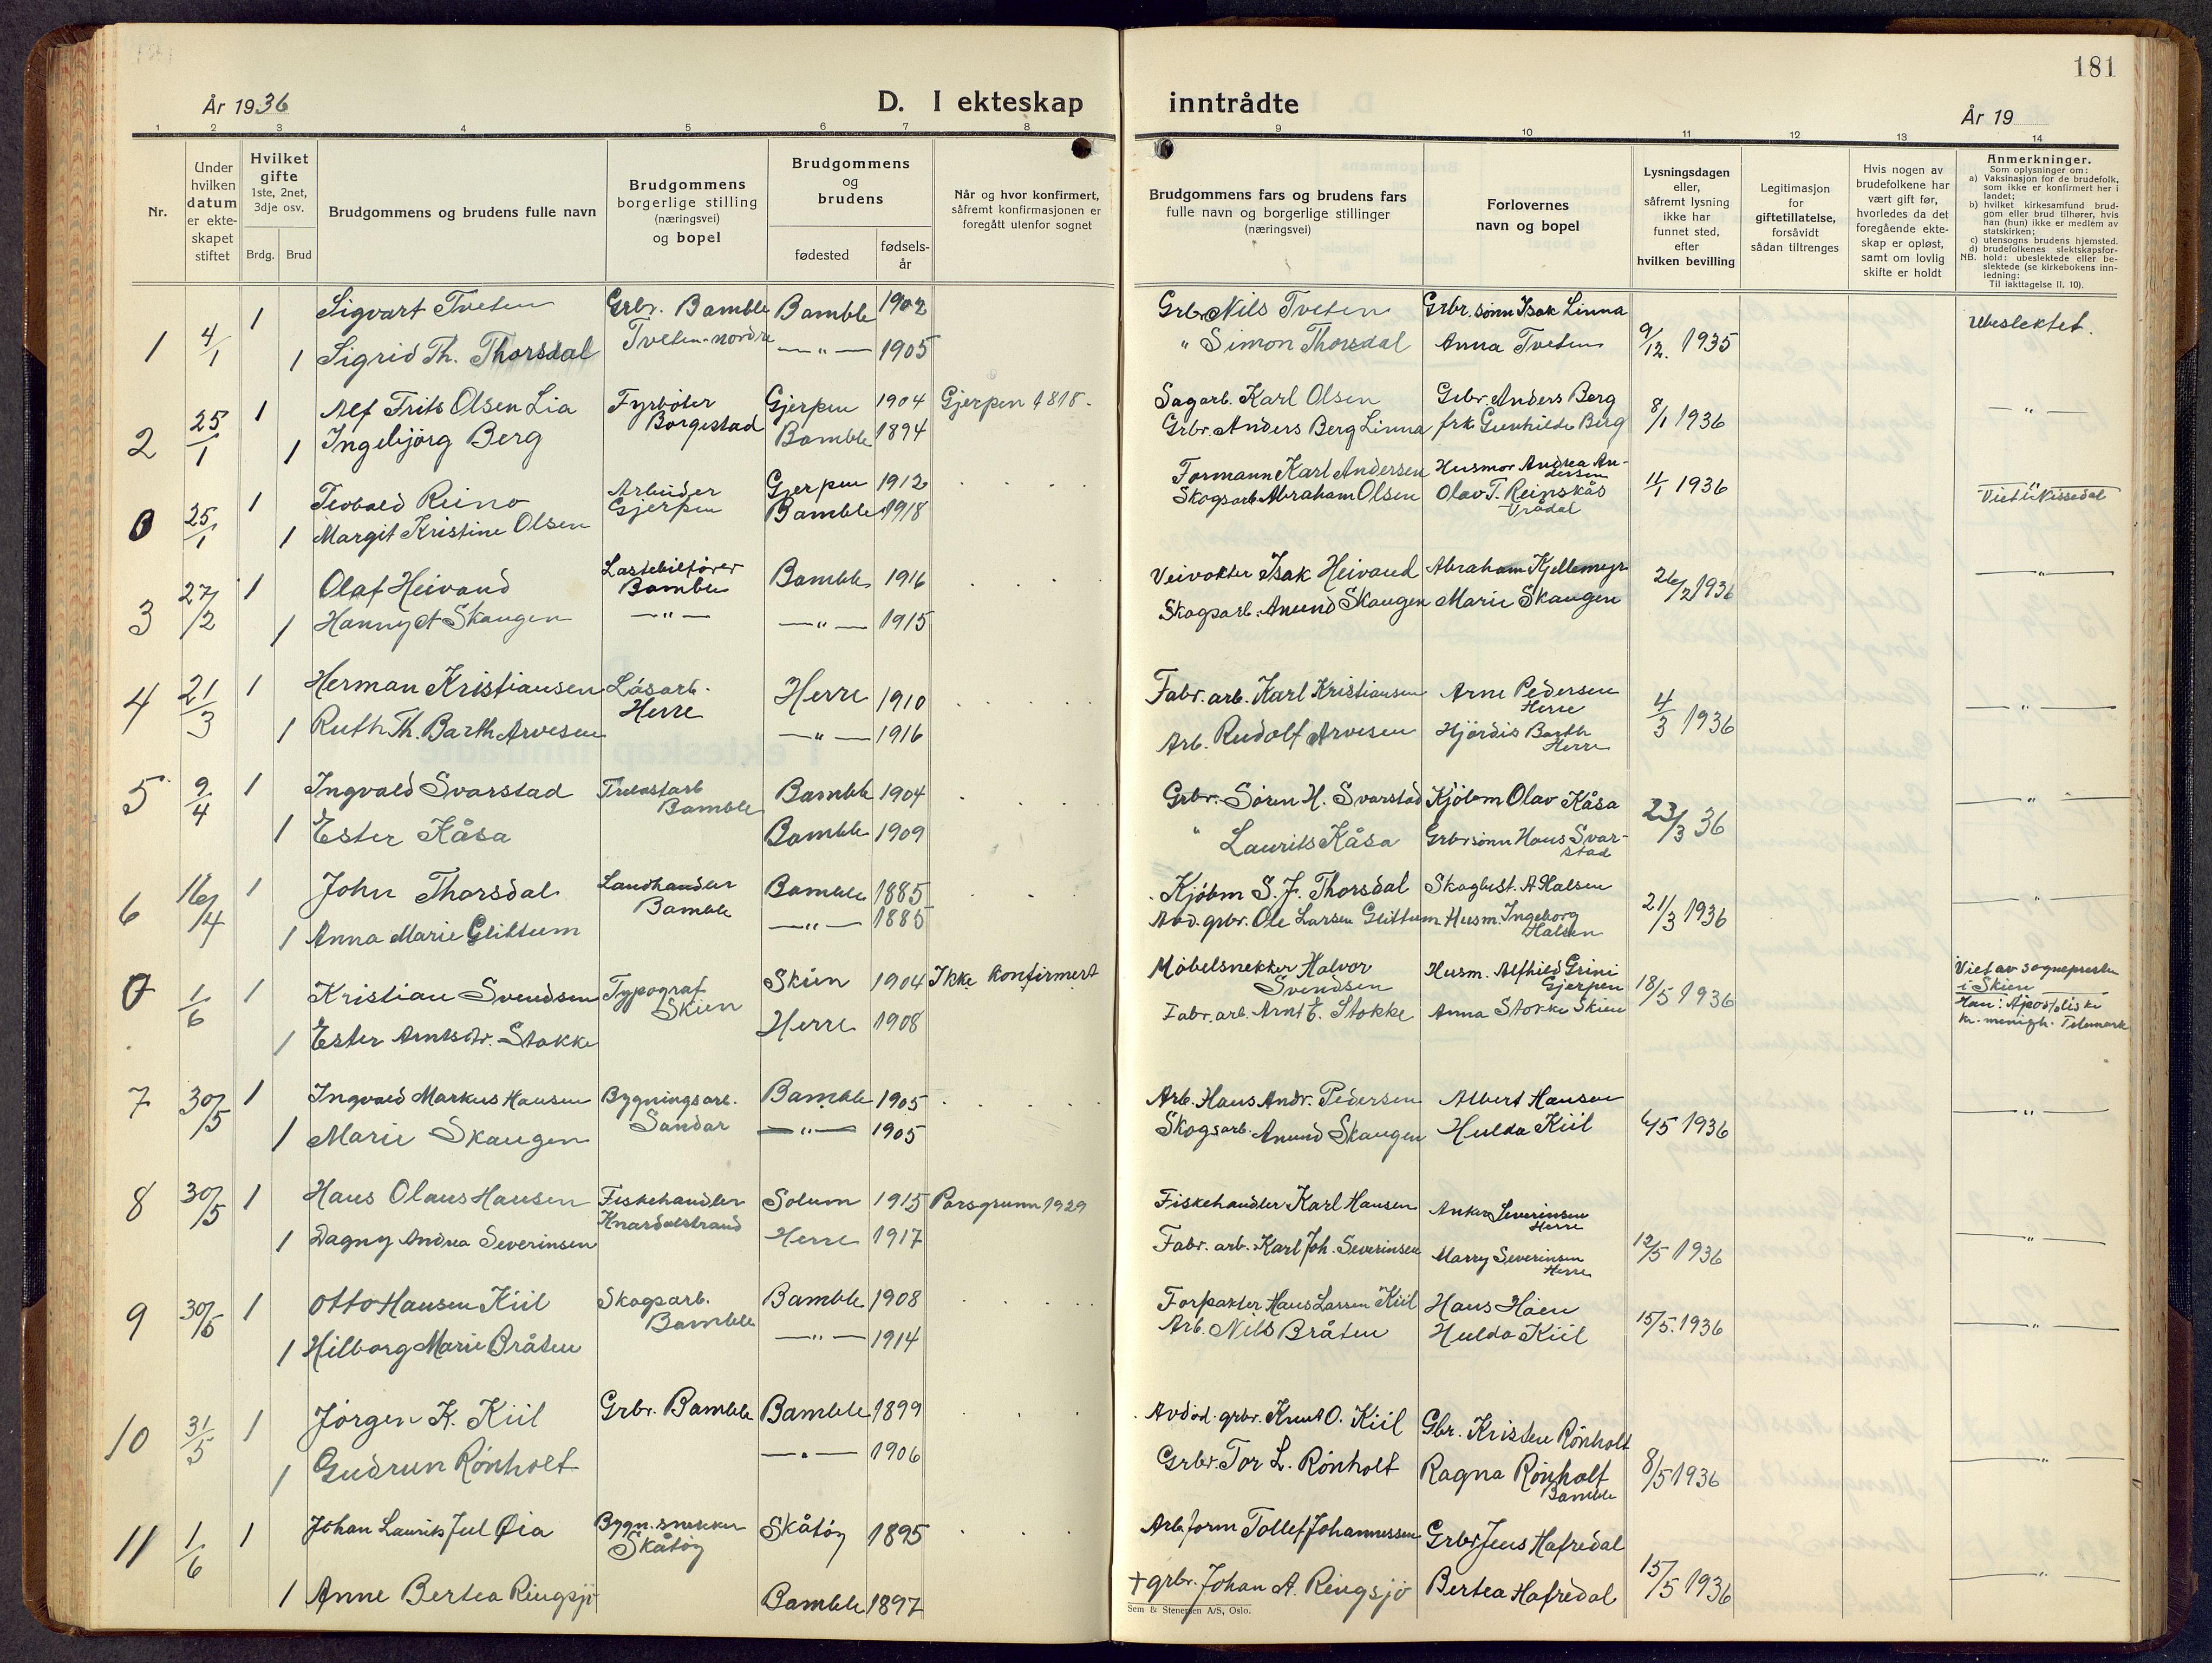 181
År 1936
D. I ekteskap inntrådte
År 19
1 2 3 4 5 6 7 8 9 10 11 12 13 14
Nr.
Under hvilken datum er ekte-skapet stiftet
Hvilket gifte 1ste, 2net, 3dje osv.
Brdg. Brud
Brudgommens og brudens fulle navn
Brudgommens borgerlige stilling (næringsvei) og bopel
Brudgommens og brudens
fødested
fødsels-år
Når og hvor konfirmert, såfremt konfirmasjonen er foregått utenfor sognet
Brudgommens fars og brudens fars fulle navn og borgerlige stillinger (næringsvei)
Forlovernes navn og bopel
Lysningsdagen eller, såfremt lysning ikke har funnet sted, efter hvilken bevilling
Legitimasjon for giftetillatelse, forsåvidt sådan tiltrenges
Hvis nogen av brudefolkene har vært gift før, hvorledes da det foregående ekte-skap er opløst, samt om lovlig skifte er holdt
Anmerkninger.
Som oplysninger om:
a) Vaksinasjon for de brudefolk, som ikke er konfirmert her i landet;
b) hvilket kirkesamfund brud-gom eller brud tilhører, hvis han (hun) ikke er medlem av statskirken;
c) utensogns brudens hjemsted.
d) brudefolkenes slektskapsfor-hold: ubeslektede eller be-slektede (se kirkebokens inn-ledning:
NB.
Til iakttagelse II. 10).
1 4/1 1 Sigvart Tveten Grbr. Bamble Tveten-nordre Bamble 1902 Grbr. Nils Tveten Grbr.sønn Isak Linna 9/12. 1935 Ubeslektet.
1 Sigrid Th. Thorsdal —"— 1905 " Simon Thorsdal Anna Tveten
2 25/1 1 Alf Frits Olsen Lia Fyrbøter Borgestad Gjerpen 1904 Gjerpen 1818. Sagarb. Karl Olsen Grbr. Anders Berg 8/1 1936 —"—
1 Ingebjörg Berg Bamble 1894 Grbr. Anders Berg Linna frk Gunhilde Berg
0 25/1 1 Teobald Reino Arbeider Gjerpen Gjerpen 1912 Formann Karl Andersen Husmor Andrea Andersen 11/1 1936 Viet i Nissedal
1 Margit Kristine Olsen Bamble 1918 Skogsarb Abraham Olsen Olav T. Reinskås Vrådal
3 27/2 1 Olaf Heivand Lastebilfører Bamble Bamble 1916 Veivokter Isak Heivand Abraham Kjellemyr 26/2 1936 —"—
1 Hanny A Skaugen —"— —"— 1915 Skogsarb. Anund Skaugen Marie Skaugen
4 21/3 1 Herman Kristiansen Låsarb. Herre Herre 1910 Fabr. arb. Karl Kristiansen Arne Pedersen Herre 4/3 1936 —"—
1 Ruth Th. Barth Arvesen —"— 1916 Arb. Rudolf Arvesen Hjördis Barth Herre
5 9/4 1 Ingvald Svarstad Trelastarb Bamble Bamble 1904 Grbr. Sören H. Svarstad Kjöbm Olav Kåsa 23/3 36 —"—
1 Ester Kåsa Bamble 1909 " Laurits Kåsa Grbrsønn Hans Svarstad
6 16/4 1 John Thorsdal Landhandler Bamble Bamble 1885 Kjöbm S. J. Thorsdal Skogbest. A Halsen 21/3 1936 —"—
1 Anna Marie Glittum —"— 1885 Avd. grbr. Ole Larsen Glittum Husm. Ingeborg Halsen
0 1/6 1 Kristian Svendsen Typograf Skien Skien 1904 Ikke konfirmert Möbelsnekker Halvor Svendsen Husm. Alfhild Grini Gjerpen 18/5 1936 Viet av sognepresten i Skien Han: Apostoliske kr. menigh. Telemark
1 Ester Arntsdtr. Stokke Herre 1908 Fabr. arb. Arnt E. Stokke Anna Stokke Skien
7 30/5 1 Ingvald Markus Hansen Bygningsarb. Sandar Bamble 1905 Arb. Hans Andr. Pedersen Albert Hansen 6/5 1936 —"—
1 Marie Skaugen —"— 1905 Skogsarb. Anund Skaugen Hulda Kiil
8 30/5 1 Hans Olaus Hansen Fiskehandler Knardalstrand Solum 1915 Porsgrunn 1929 Fiskehandler Karl Hansen Anker Severinsen Herre 12/5 1936 —"—
1 Dagny Andrea Severinsen Herre 1917 Fabr. arb. Karl Joh. Severinsen Marry Severinsen Herre
9 30/5 1 Otto Hansen Kiil Skogsarb. Bamble Bamble 1908 Forpakter Hans Larsen Kiil Hans Håen 15/5. 1936 —"—
1 Hilborg Marie Bråten —"— 1914 Arb. Nils Bråten Hulda Kiil
10 31/5 1 Jörgen K. Kiil Grbr. Bamble Bamble 1899 Avdød. grbr. Knut O. Kiil Gbr. Kristen Rönholt 8/5 1936 —"—
1 Gudrun Rönholt —"— 1906 Grbr. Tor L. Rönholt Ragna Rönholt Bamble
11 1/6 1 Johan Laurits Jul Øia Bygn. snekker Skåtöy Skåtöy 1895 Arb.form Tollef Johannessen Grbr Jens Hafredal 15/5 1936 —"—
1 Anne Bertea Ringsjö Bamble 1897 + grbr. Johan A. Ringsjö Bertea Hafredal
Sem & Stenersen A/S, Oslo.